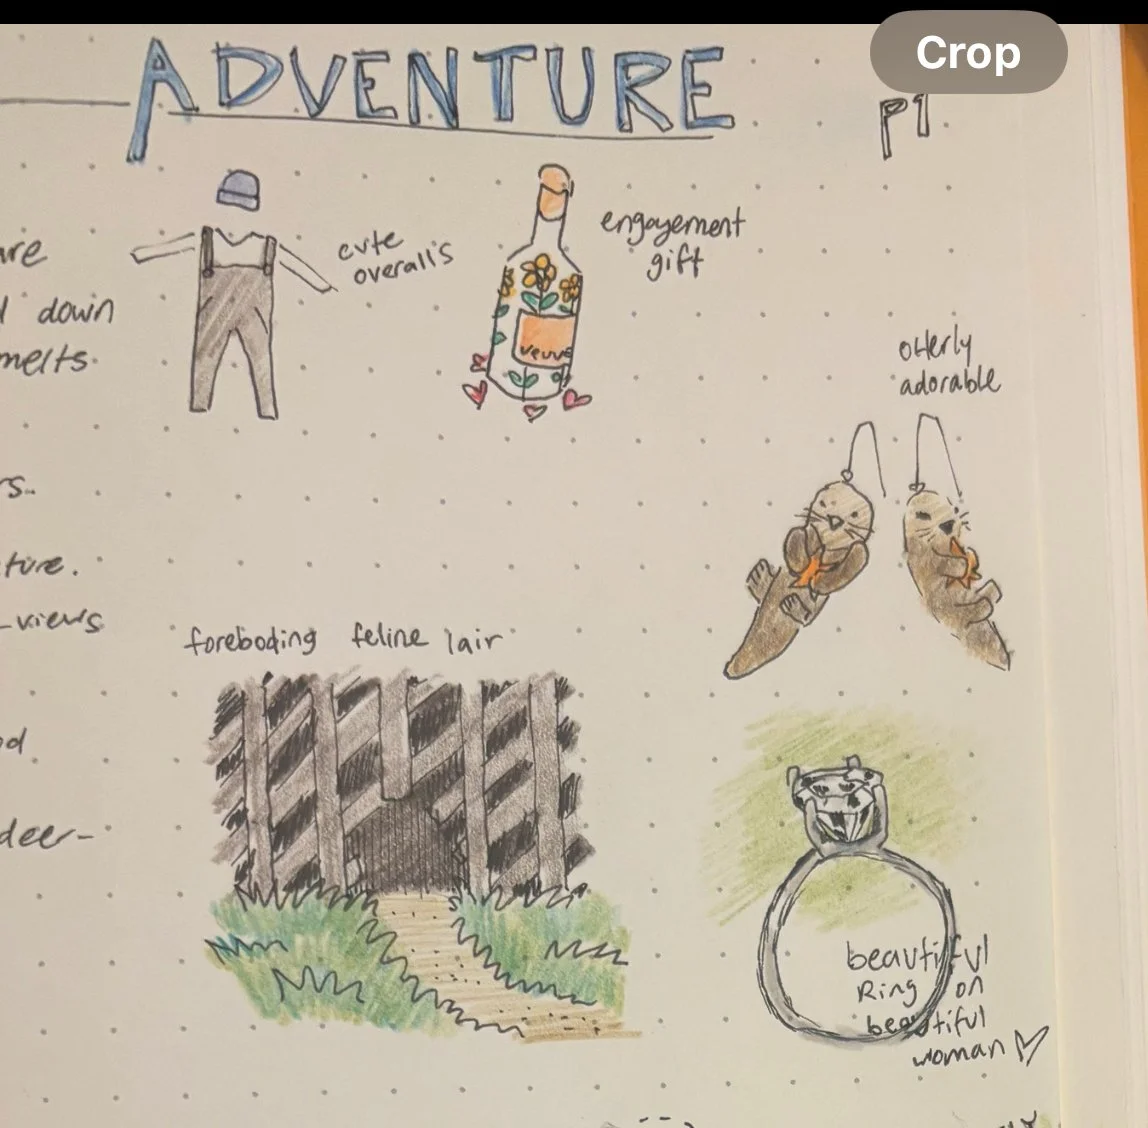 Crop
ADVENTURE
P1
cute
overalls
engagement
gift
veuve
down
melts.
otterly
adorable
rs..
ture.
-views
foreboding feline lair
deer-
beautiful
Ring on
beautiful
woman